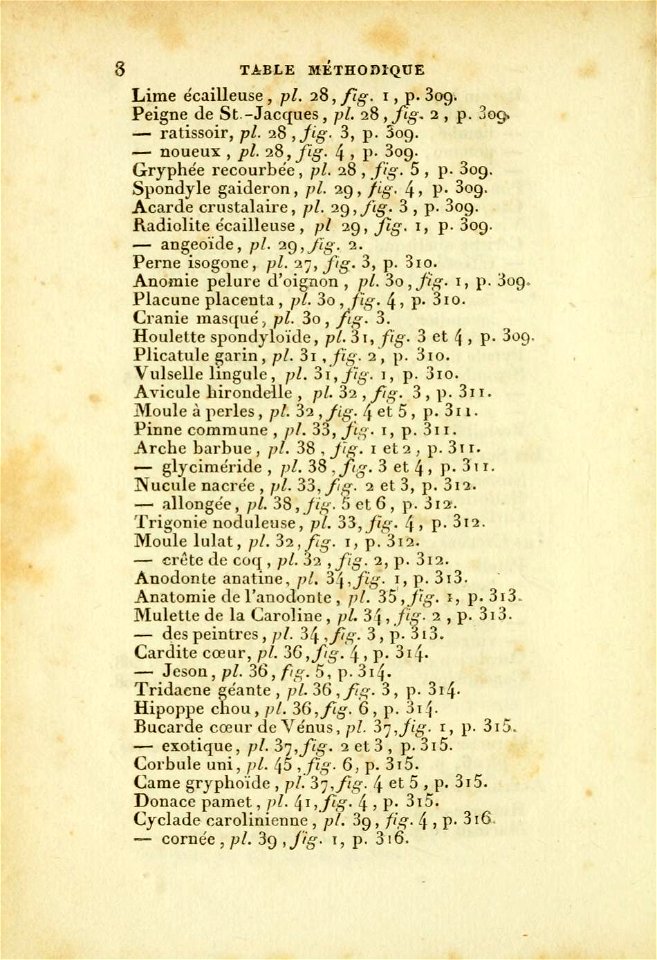 8 TABLE MÉTHODIQUE
Lime écailleuse, pl. 28, fig. 1, p. 309.
Peigne de St.-Jacques, pl. 28, fig. 2, p. 309.
— ratissoir, pl. 28, fig. 3, p. 309.
— noueux, pl. 28, fig. 4, p. 309.
Gryphée recourbée, pl. 28, fig. 5, p. 309.
Spondyle gaideron, pl. 29, fig. 4, p. 309.
Acarde crustalaire, pl. 29, fig. 3, p. 309.
Radiolite écailleuse, pl 29, fig. 1, p. 309.
— angeoïde, pl. 29, fig. 2.
Perne isogone, pl. 27, fig. 3, p. 310.
Anomie pelure d'oignon, pl. 30, fig. 1, p. 309.
Placune placenta, pl. 30, fig. 4, p. 310.
Cranie masqué, pl. 30, fig. 3.
Houlette spondyloïde, pl. 31, fig. 3 et 4, p. 309.
Plicatule garin, pl. 31, fig. 2, p. 310.
Vulselle lingule, pl. 31, fig. 1, p. 310.
Avicule hirondelle, pl. 32, fig. 3, p. 311.
Moule à perles, pl. 32, fig. 4 et 5, p. 311.
Pinne commune, pl. 33, fig. 1, p. 311.
Arche barbue, pl. 38, fig. 1 et 2, p. 311.
— glyciméride, pl. 38, fig. 3 et 4, p. 311.
Nucule nacrée, pl. 33, fig. 2 et 3, p. 312.
— allongée, pl. 38, fig. 5 et 6, p. 312.
Trigonie noduleuse, pl. 33, fig. 4, p. 312.
Moule lulat, pl. 32, fig. 1, p. 312.
— crête de coq, pl. 32, fig. 2, p. 312.
Anodonte anatine, pl. 34, fig. 1, p. 313.
Anatomie de l'anodonte, pl. 35, fig. 1, p. 313.
Mulette de la Caroline, pl. 34, fig. 2, p. 313.
— des peintres, pl. 34, fig. 3, p. 313.
Cardite cœur, pl. 36, fig. 4, p. 314.
— Jeson, pl. 36, fig. 5, p. 314.
Tridacne géante, pl. 36, fig. 3, p. 314.
Hipoppe chou, pl. 36, fig. 6, p. 314.
Bucarde cœur de Vénus, pl. 37, fig. 1, p. 315.
— exotique, pl. 37, fig. 2 et 3, p. 315.
Corbule uni, pl. 45, fig. 6, p. 315.
Came gryphoïde, pl. 37, fig. 4 et 5, p. 315.
Donace pamet, pl. 41, fig. 4, p. 315.
Cyclade carolinienne, pl. 39, fig. 4, p. 316.
— cornée, pl. 39, fig. 1, p. 316.